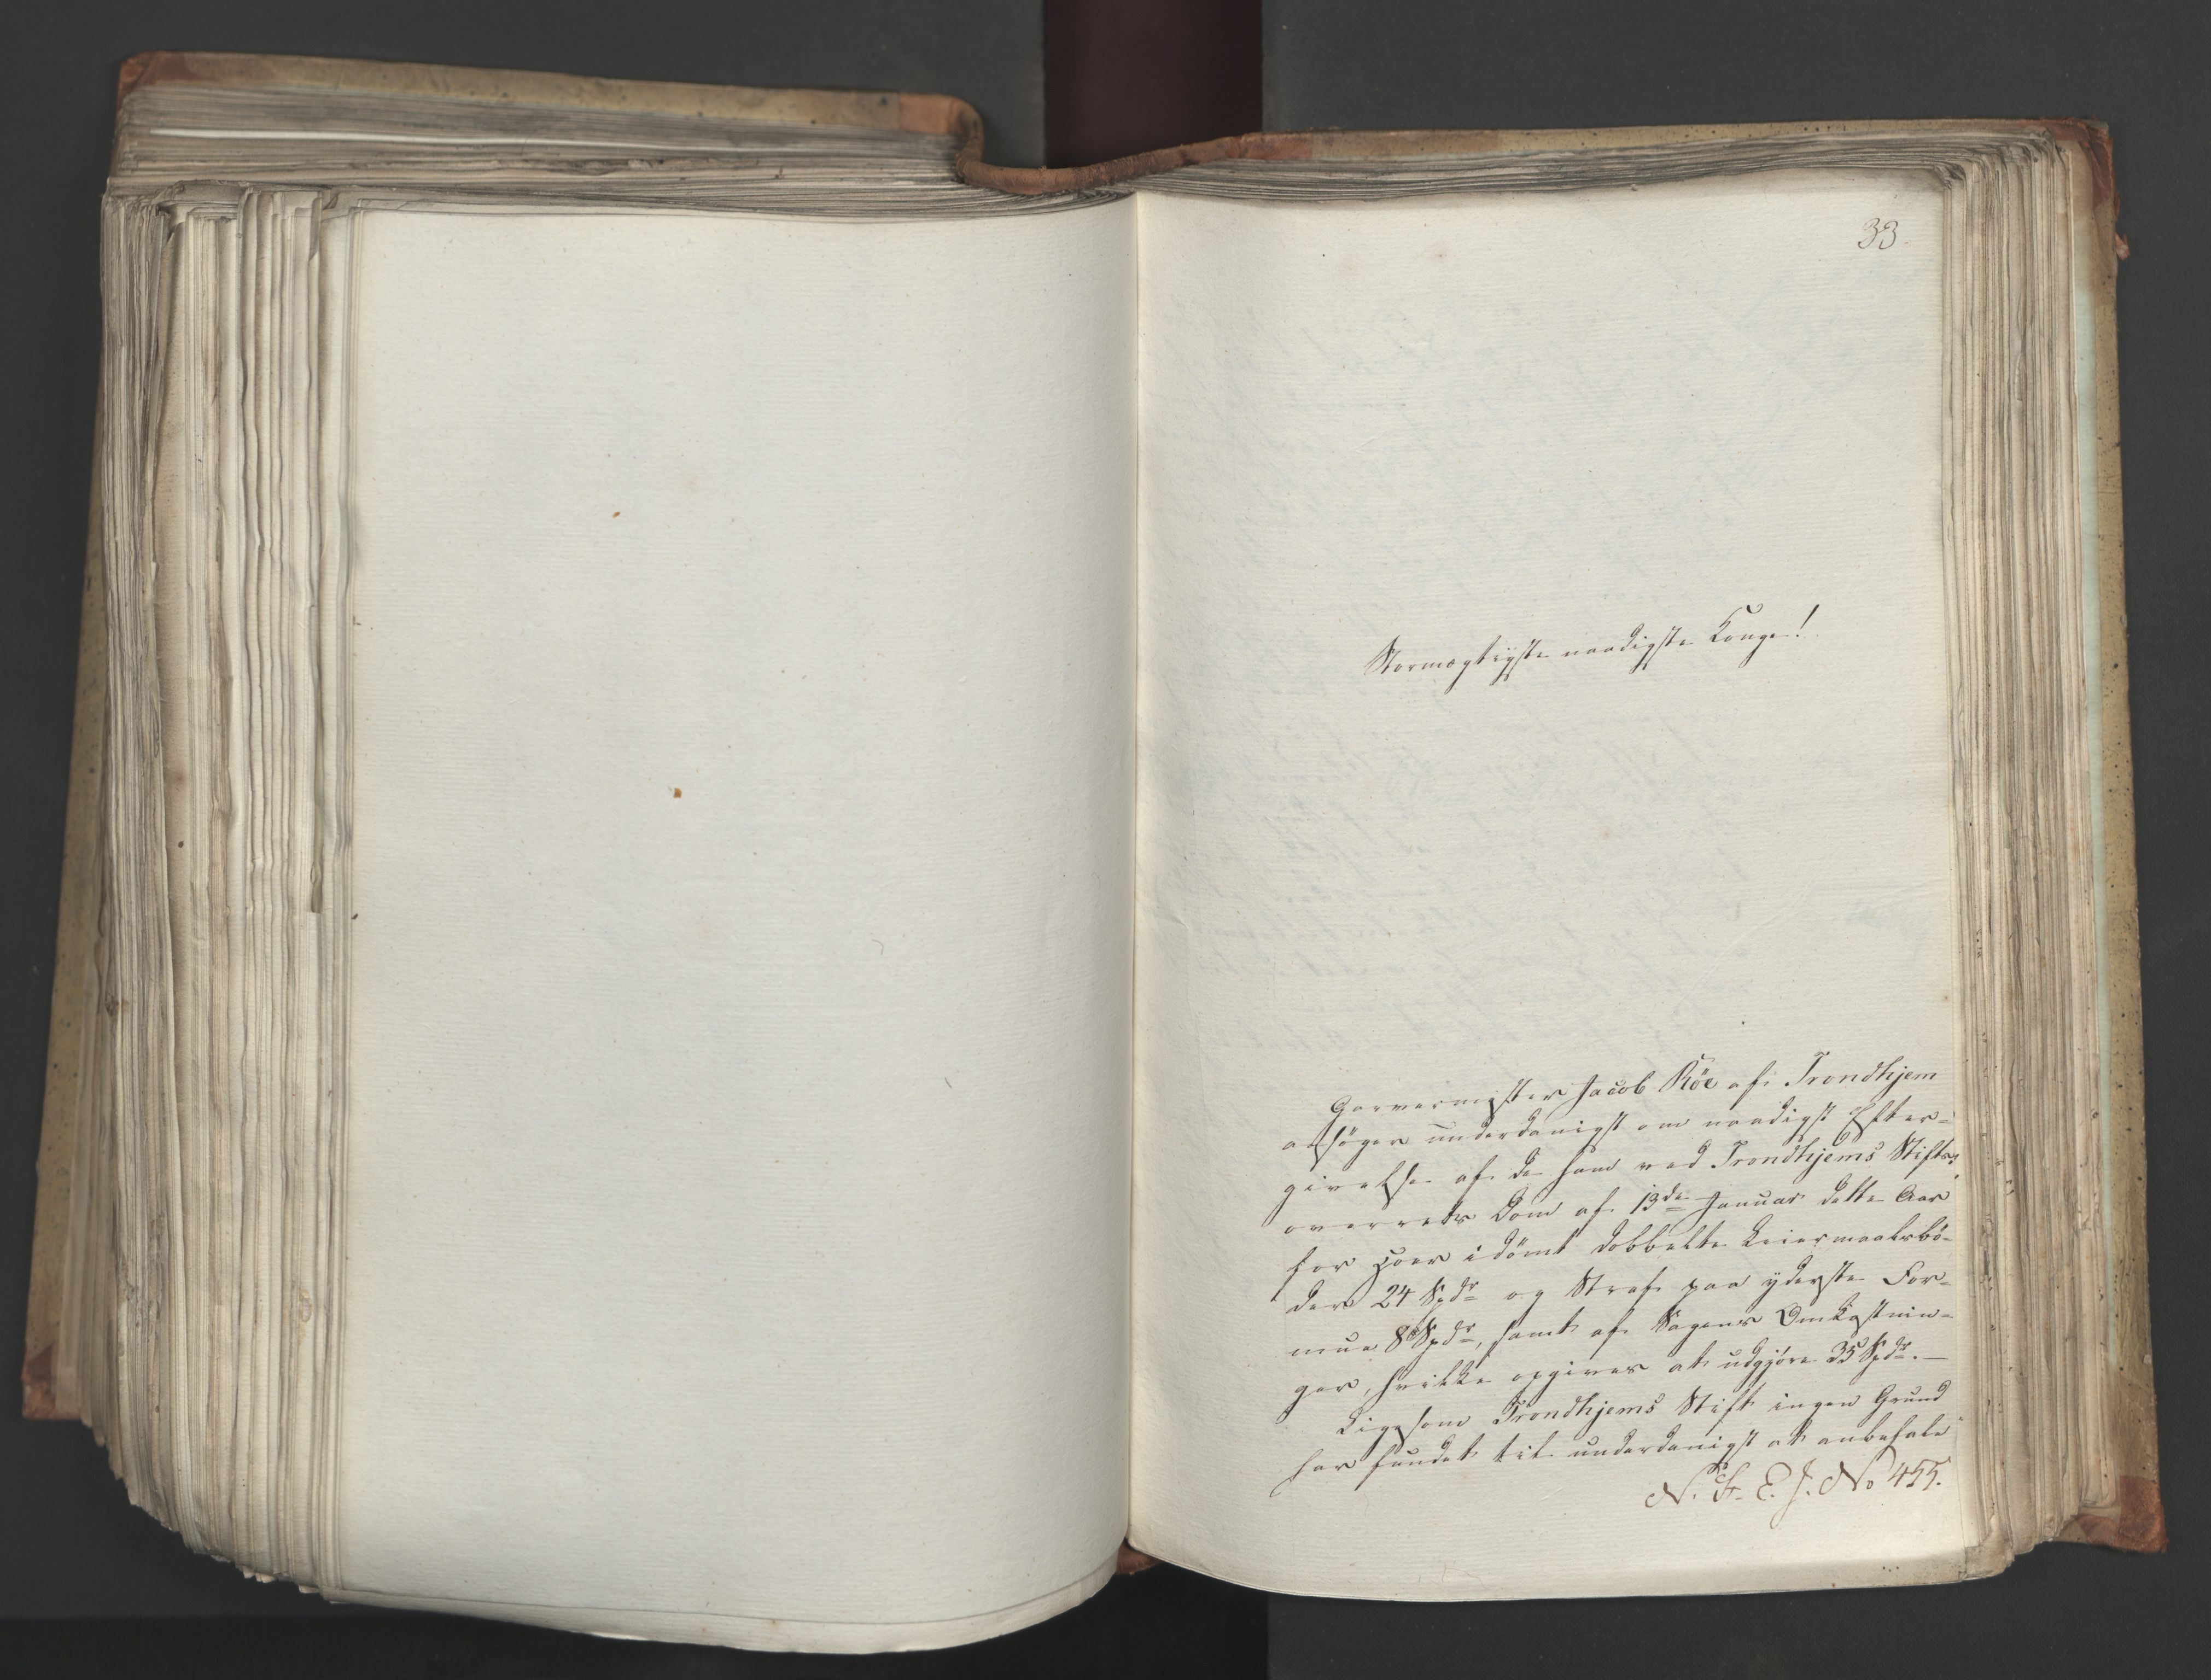 33.
Stormægtigste naadigste Konge!
Garvermester Jacob Röe af Trondhjem
ansöger underdanigst om naadigst Efter-
givelse af de ham ved Trondhjems Stifts-
overrets Dom af 13de Januar dette Aar
for Hoer idömt dobbelte Leiermaalsbö-
der 24 Spdr og Straf paa yderste For-
mue 8 Spdr, samt af Sagens Omkostnin-
ger, hvilke opgives at udgjöre 35 Spdr. —
Ligesom Trondhjems Stift ingen Grund
har fundet til underdanigst at anbefale
N. St. E. J. No 455.